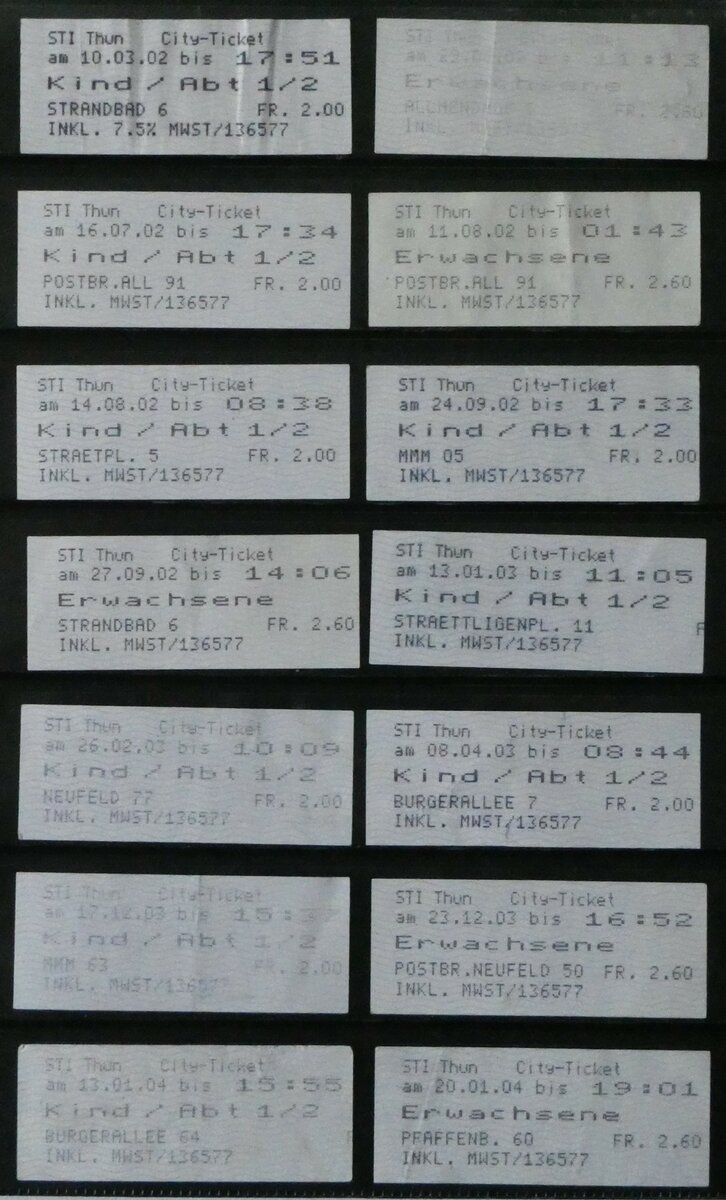 STI Thun City-Ticket
am 10.03.02 bis 17:51
Kind / Abt 1/2
STRANDBAD 6 FR. 2.00
INKL. 7.5% MWST/136577
STI Thun City-Ticket
bis 11:13
Erwachsene
FR. 2.60
INKL. MWST/136577
STI Thun City-Ticket
am 16.07.02 bis 17:34
Kind / Abt 1/2
POSTBR.ALL 91 FR. 2.00
INKL. MWST/136577
STI Thun City-Ticket
am 11.08.02 bis 01:43
Erwachsene
POSTBR.ALL 91 FR. 2.60
INKL. MWST/136577
STI Thun City-Ticket
am 14.08.02 bis 08:38
Kind / Abt 1/2
STRAETPL. 5 FR. 2.00
INKL. MWST/136577
STI Thun City-Ticket
am 24.09.02 bis 17:33
Kind / Abt 1/2
MMM 05 FR. 2.00
INKL. MWST/136577
STI Thun City-Ticket
am 27.09.02 bis 14:06
Erwachsene
STRANDBAD 6 FR. 2.60
INKL. MWST/136577
STI Thun City-Ticket
am 13.01.03 bis 11:05
Kind / Abt 1/2
STRAETTLIGENPL. 11 F
INKL. MWST/136577
STI Thun City-Ticket
am 26.02.03 bis 10:09
Kind / Abt 1/2
NEUFELD 77 FR. 2.00
INKL. MWST/136577
STI Thun City-Ticket
am 08.04.03 bis 08:44
Kind / Abt 1/2
BURGERALLEE 7 FR. 2.00
INKL. MWST/136577
STI Thun City-Ticket
am 17.12.03 bis 15:37
Kind / Abt 1/2
63 FR. 2.00
INKL. MWST/136577
STI Thun City-Ticket
am 23.12.03 bis 16:52
Erwachsene
POSTBR.NEUFELD 50 FR. 2.60
INKL. MWST/136577
STI Thun City-Ticket
am 13.01.04 bis 15:55
Kind / Abt 1/2
BURGERALLEE 64 F
INKL. MWST/136577
STI Thun City-Ticket
am 20.01.04 bis 19:01
Erwachsene
PFAFFENB. 60 FR. 2.60
INKL. MWST/136577